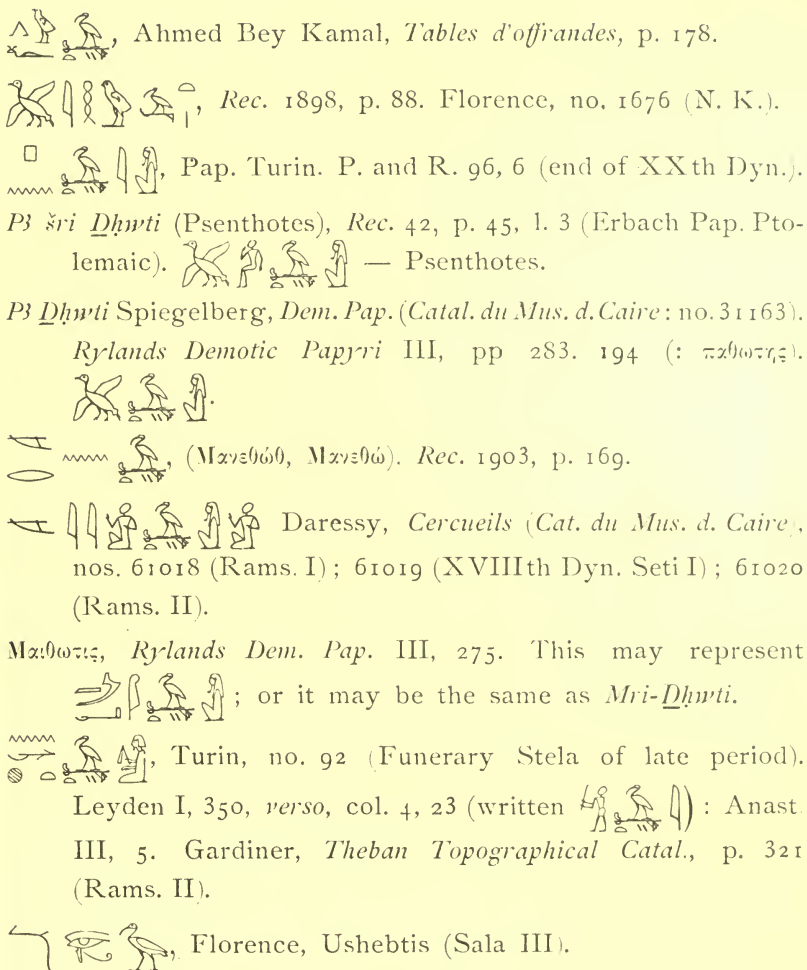 , Ahmed Bey Kamal, Tables d'offrandes, p. 178.
, Rec. 1898, p. 88. Florence, no. 1676 (N. K.).
, Pap. Turin. P. and R. 96, 6 (end of XXth Dyn.).
Pȝ šri Ḏḥwti (Psenthotes), Rec. 42, p. 45, l. 3 (Erbach Pap. Pto-
lemaic). — Psenthotes.
Pȝ Ḏḥwti Spiegelberg, Dem. Pap. (Catal. du Mus. d. Caire: no. 31163).
Rylands Demotic Papyri III, pp 283. 194 (: παθωτης).
.
, (Μανεθώθ, Μανεθώ). Rec. 1903, p. 169.
Daressy, Cercueils (Cat. du Mus. d. Caire),
nos. 61018 (Rams. I); 61019 (XVIIIth Dyn. Seti I); 61020
(Rams. II).
Μαιθωτις, Rylands Dem. Pap. III, 275. This may represent
; or it may be the same as Mri-Ḏḥwti.
, Turin, no. 92 (Funerary Stela of late period).
Leyden I, 350, verso, col. 4, 23 (written ) : Anast.
III, 5. Gardiner, Theban Topographical Catal., p. 321
(Rams. II).
, Florence, Ushebtis (Sala III).